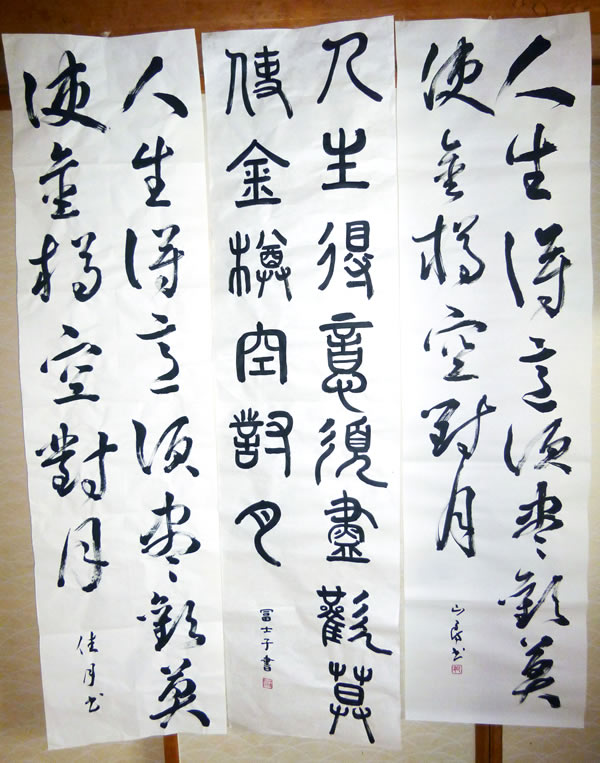 人生得意須盡歡莫
使金樽空對月
人生得意須盡歡莫
使金樽空對月
冨士子書
人生得意須盡歡莫
使金樽空對月
佳月書